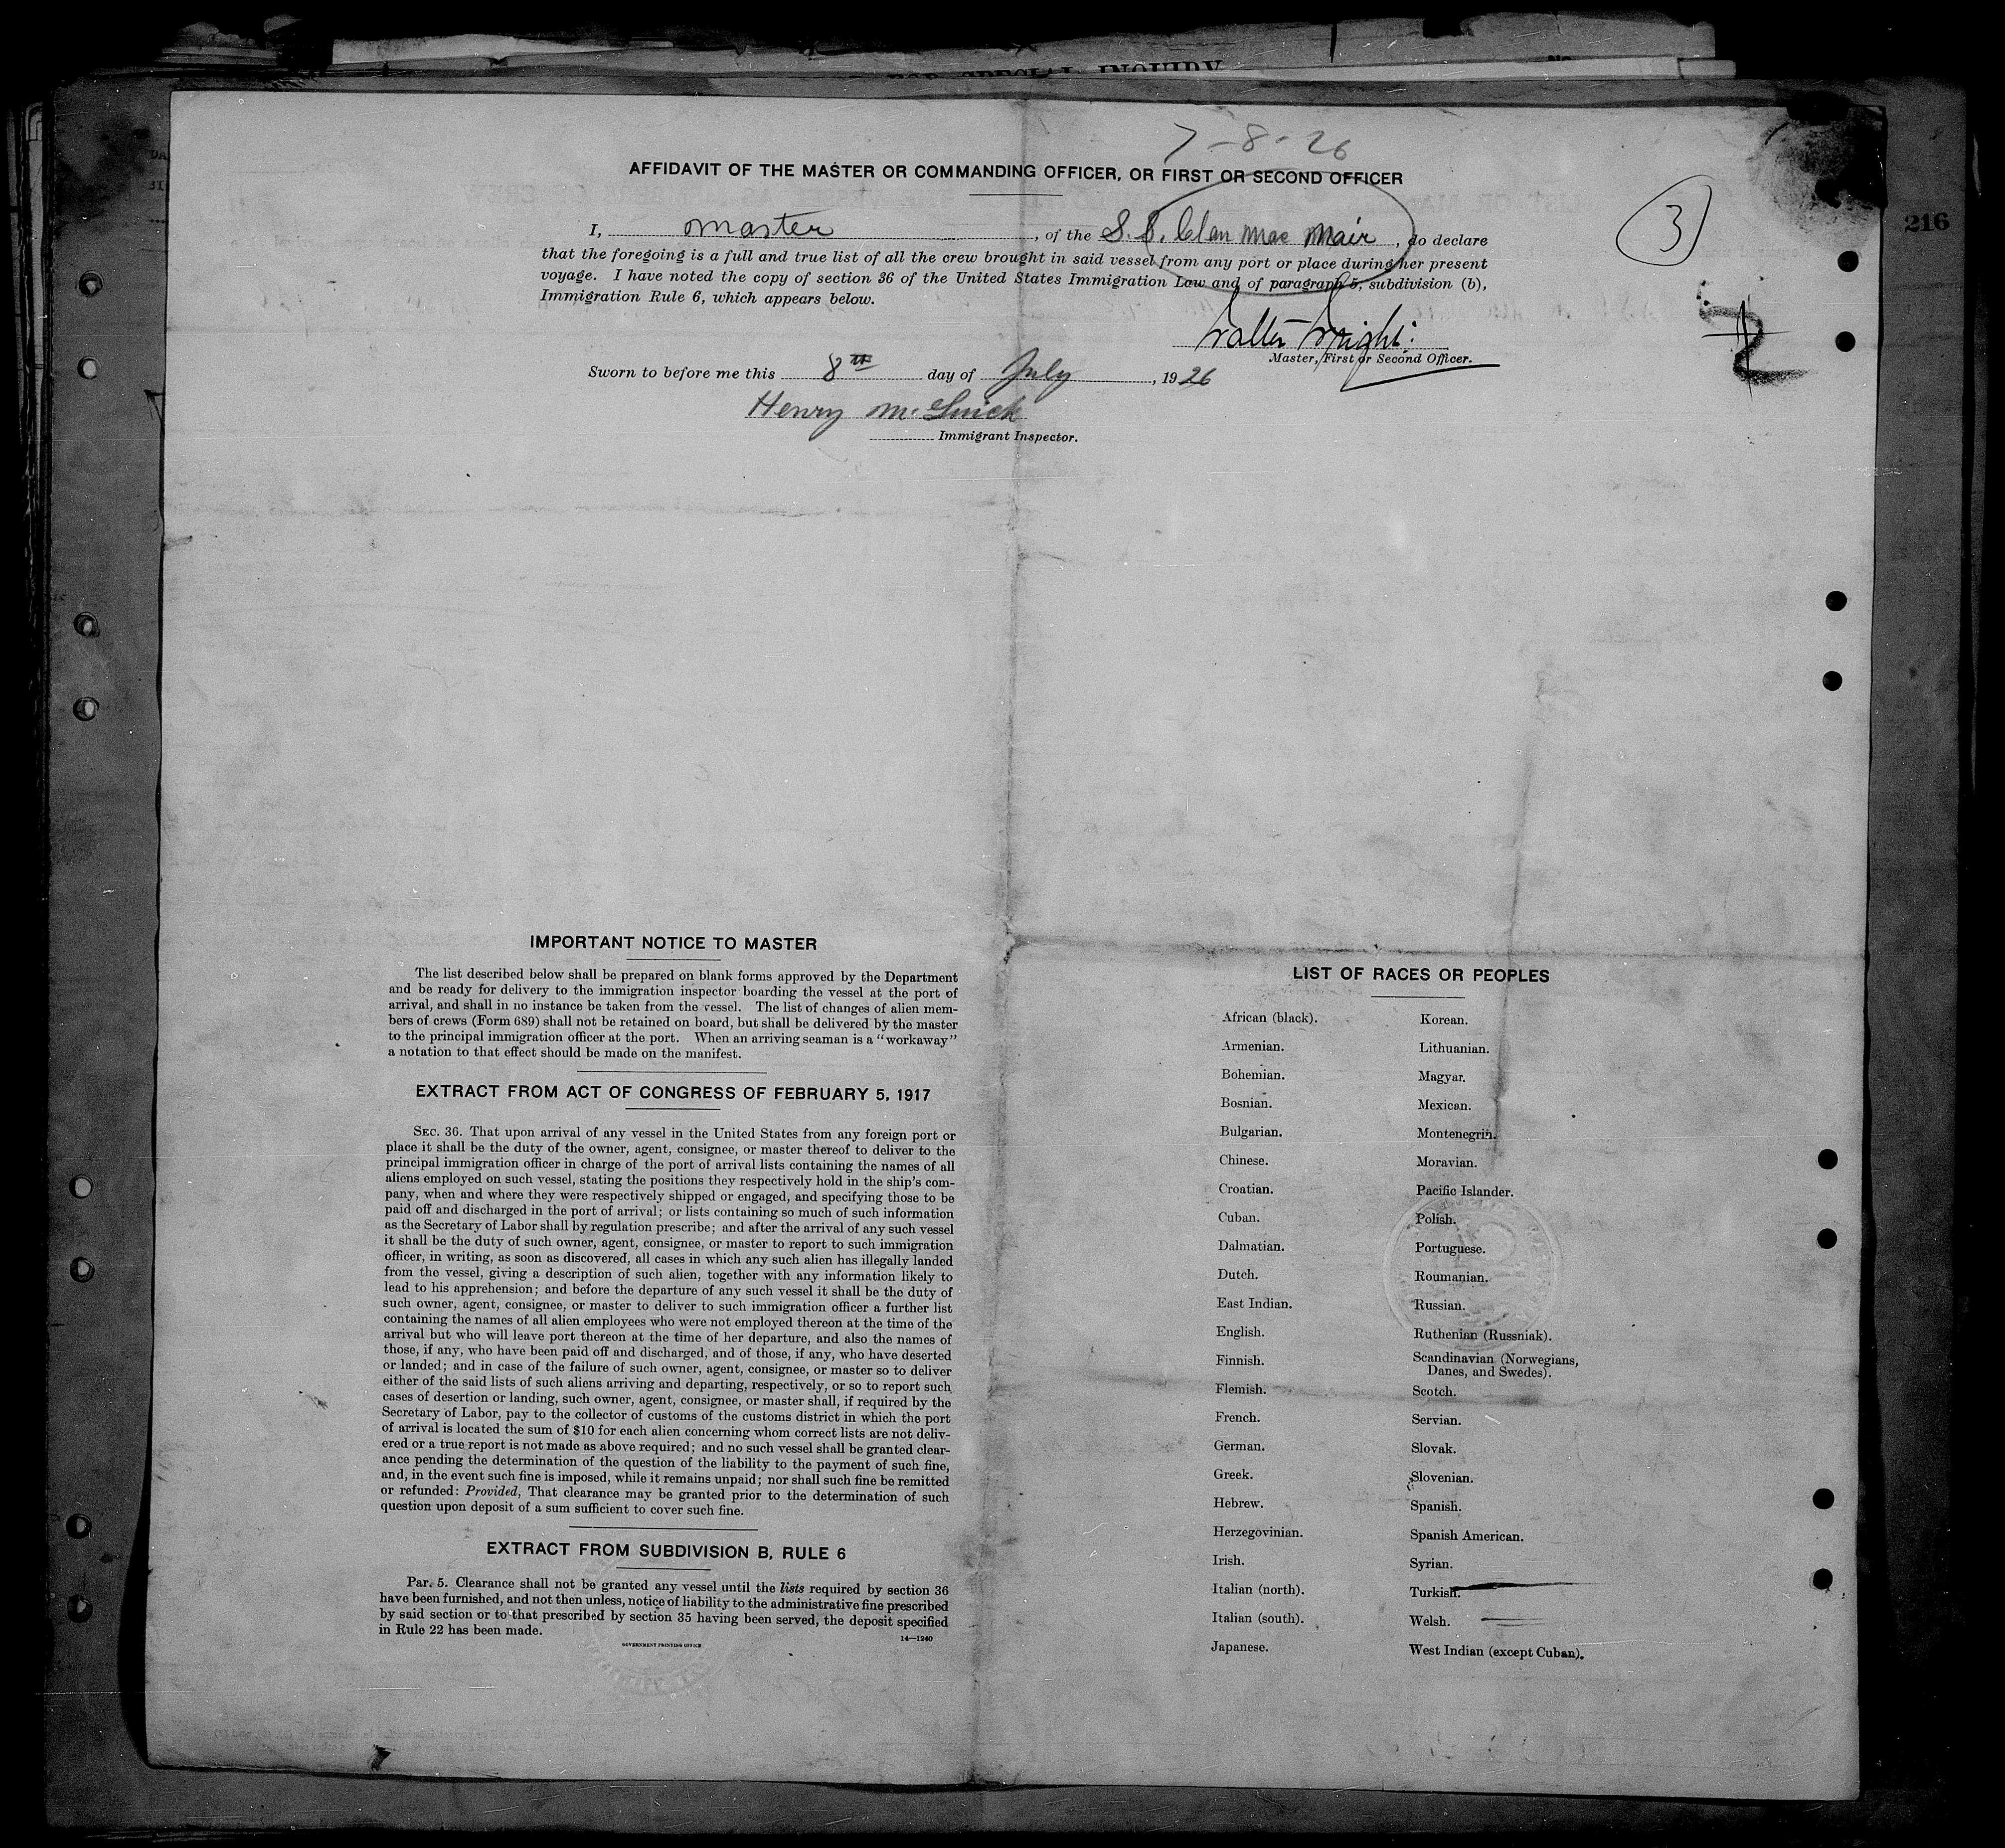 FOR SPECIAL INQUIRY
7-8-26
AFFIDAVIT OF THE MASTER OR COMMANDING OFFICER, OR FIRST OR SECOND OFFICER
3
216
I, master, of the S.S. Clan Mac Nair, do declare
that the foregoing is a full and true list of all the crew brought in said vessel from any port or place during her present
voyage. I have noted the copy of section 36 of the United States Immigration Law and of paragraph 5, subdivision (b),
Immigration Rule 6, which appears below.
Walter Wright.
Master, First or Second Officer.
Sworn to before me this 8th day of July, 1926
Henry
Immigrant Inspector.
IMPORTANT NOTICE TO MASTER
The list described below shall be prepared on blank forms approved by the Department
and be ready for delivery to the immigration inspector boarding the vessel at the port of
arrival, and shall in no instance be taken from the vessel. The list of changes of alien mem-
bers of crews (Form 689) shall not be retained on board, but shall be delivered by the master
to the principal immigration officer at the port. When an arriving seaman is a "workaway"
a notation to that effect should be made on the manifest.
EXTRACT FROM ACT OF CONGRESS OF FEBRUARY 5, 1917
SEC. 36. That upon arrival of any vessel in the United States from any foreign port or
place it shall be the duty of the owner, agent, consignee, or master thereof to deliver to the
principal immigration officer in charge of the port of arrival lists containing the names of all
aliens employed on such vessel, stating the positions they respectively hold in the ship's com-
pany, when and where they were respectively shipped or engaged, and specifying those to be
paid off and discharged in the port of arrival; or lists containing so much of such information
as the Secretary of Labor shall by regulation prescribe; and after the arrival of any such vessel
it shall be the duty of such owner, agent, consignee, or master to report to such immigration
officer, in writing, as soon as discovered, all cases in which any such alien has illegally landed
from the vessel, giving a description of such alien, together with any information likely to
lead to his apprehension; and before the departure of any such vessel it shall be the duty of
such owner, agent, consignee, or master to deliver to such immigration officer a further list
containing the names of all alien employees who were not employed thereon at the time of the
arrival but who will leave port thereon at the time of her departure, and also the names of
those, if any, who have been paid off and discharged, and of those, if any, who have deserted
or landed; and in case of the failure of such owner, agent, consignee, or master so to deliver
either of the said lists of such aliens arriving and departing, respectively, or so to report such
cases of desertion or landing, such owner, agent, consignee, or master shall, if required by the
Secretary of Labor, pay to the collector of customs of the customs district in which the port
of arrival is located the sum of $10 for each alien concerning whom correct lists are not deliv-
ered or a true report is not made as above required; and no such vessel shall be granted clear-
ance pending the determination of the question of the liability to the payment of such fine,
and, in the event such fine is imposed, while it remains unpaid; nor shall such fine be remitted
or refunded: Provided, That clearance may be granted prior to the determination of such
question upon deposit of a sum sufficient to cover such fine.
EXTRACT FROM SUBDIVISION B, RULE 6
Par. 5. Clearance shall not be granted any vessel until the lists required by section 36
have been furnished, and not then unless, notice of liability to the administrative fine prescribed
by said section or to that prescribed by section 35 having been served, the deposit specified
in Rule 22 has been made.
GOVERNMENT PRINTING OFFICE
14—1240
LIST OF RACES OR PEOPLES
African (black).
Armenian.
Bohemian.
Bosnian.
Bulgarian.
Chinese.
Croatian.
Cuban.
Dalmatian.
Dutch.
East Indian.
English.
Finnish.
Flemish.
French.
German.
Greek.
Hebrew.
Herzegovinian.
Irish.
Italian (north).
Italian (south).
Japanese.
Korean.
Lithuanian.
Magyar.
Mexican.
Montenegrin.
Moravian.
Pacific Islander.
Polish.
Portuguese.
Roumanian.
Russian.
Ruthenian (Russniak).
Scandinavian (Norwegians,
Danes, and Swedes).
Scotch.
Servian.
Slovak.
Slovenian.
Spanish.
Spanish American.
Syrian.
Turkish.
Welsh.
West Indian (except Cuban).